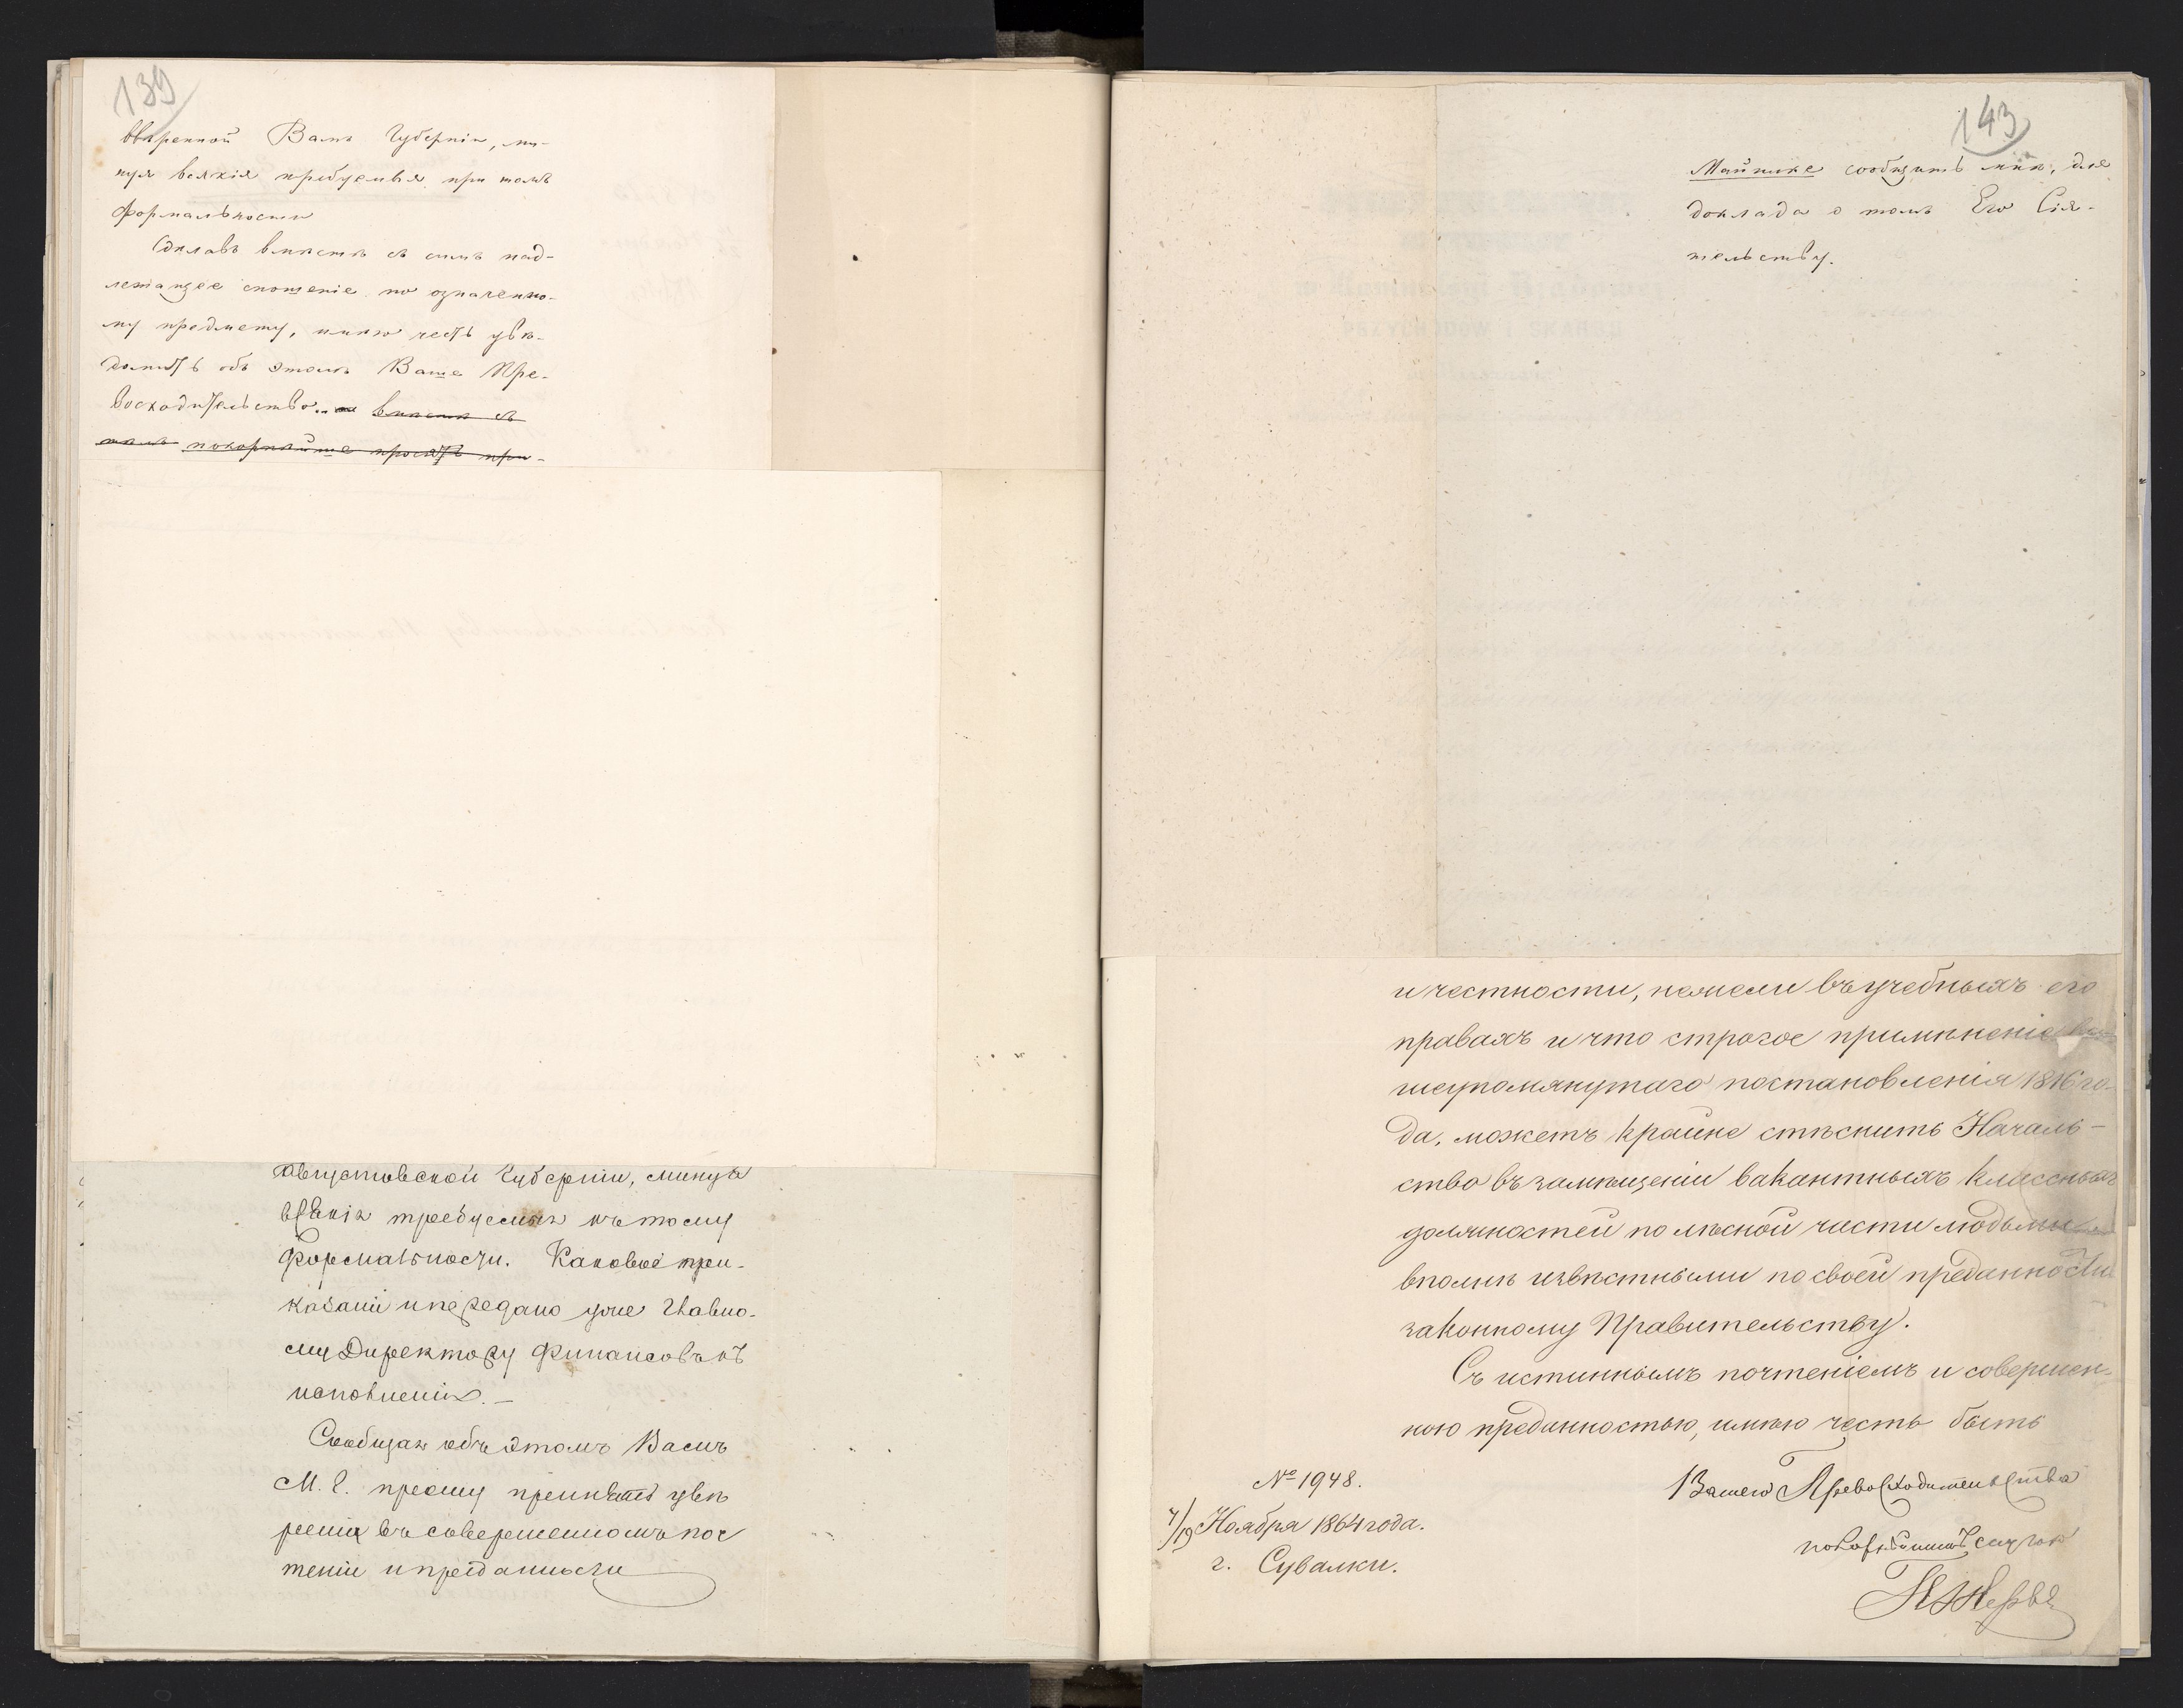 139
ввѣренной Вамъ Губерніи, ми-
нуя всякія требуемыя при томъ
формальности
Сдѣлавъ вмѣстѣ съ симъ над-
лежащее сношеніе по означенно-
му предмету, имѣю честь увѣ-
домить объ этомъ Ваше Пре-
восходительство. вмѣстѣ съ
тѣмъ покорнѣйше просятъ при-
Августовской Губерніи, минуя
всякія требуемыя къ тому
формальности. Каковое при-
казаніе и передано уже Главно-
му Директору Финансовъ къ
исполненію.
Сообщая объ этомъ Вамъ
М. Г. прошу принять увѣ
реніе въ совершенномъ поч
теніи и преданности
143
сообщить мнѣ, для
доклада о томъ Его Сія-
тельству.
и честности, нежели въ учебныхъ его
правахъ и что строгое примѣненіе вы-
шеупомянутаго постановленія 1816 го-
да, можетъ крайне стѣснить Началь-
ство въ замѣщеніи вакантныхъ классныхъ
должностей по лѣсной части людьми
вполнѣ извѣстными по своей преданности
законному Правительству.
Съ истиннымъ почтеніемъ и совершен-
ною преданностью, имѣю честь быть
Вашего Превосходительства
покорнѣйшій слуга
№ 1948.
7/19 Ноября 1864 года.
г. Сувалки.